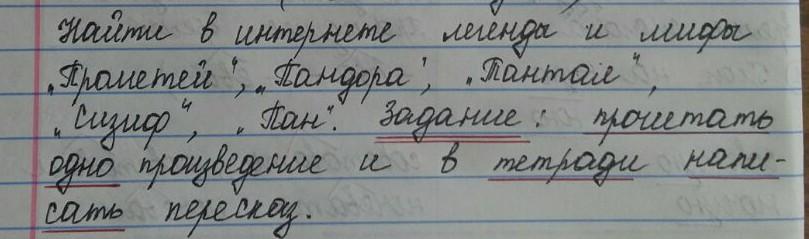 Найти в интернете легенды и мифы
„Прометей", „Пандора", „Тантал",
„Сизиф", „Пан". Задание: прочитать
одно произведение и в тетради напи-
сать пересказ.